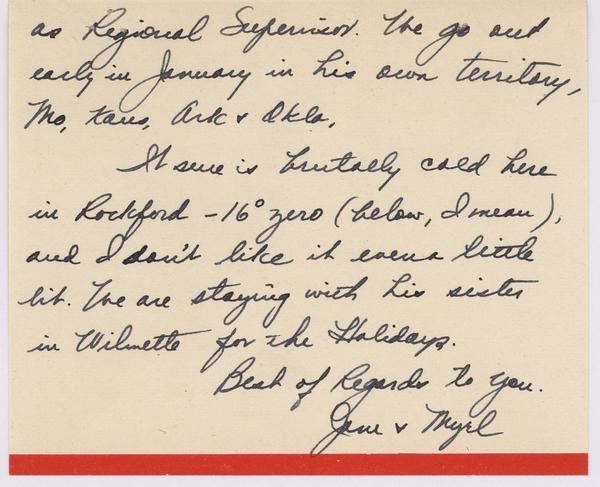 as Regional Supervisor. We go out
early in January in his own territory,
Mo, Kans, Ark & Okla.
It sure is brutally cold here
in Rockford -16° zero (below, I mean),
and I don't like it even a little
bit. We are staying with his sister
in Wilmette for the Holidays.
Best of Regards to you.
Jane & Myrl